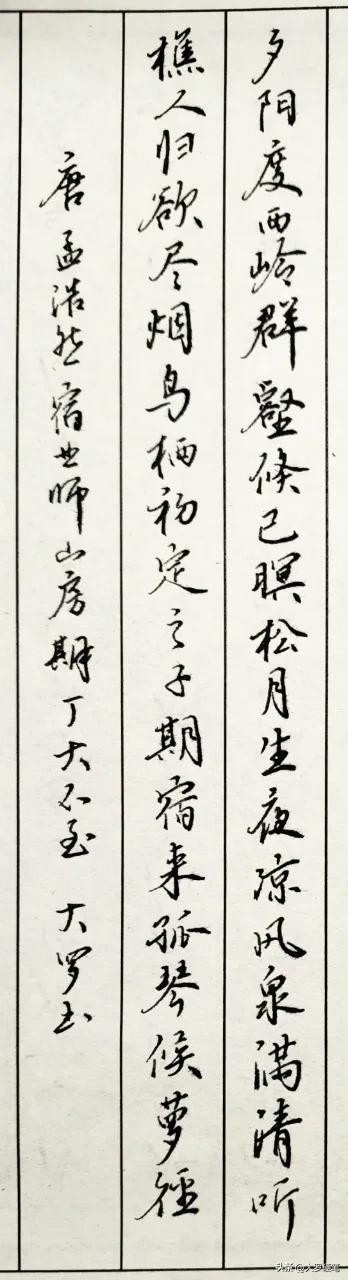 夕阳度西岭群壑倏已暝松月生夜凉风泉满清听
樵人归欲尽烟鸟栖初定之子期宿来孤琴候萝径
唐孟浩然宿业师山房期丁大不至 大罗书
头条@大罗硬笔